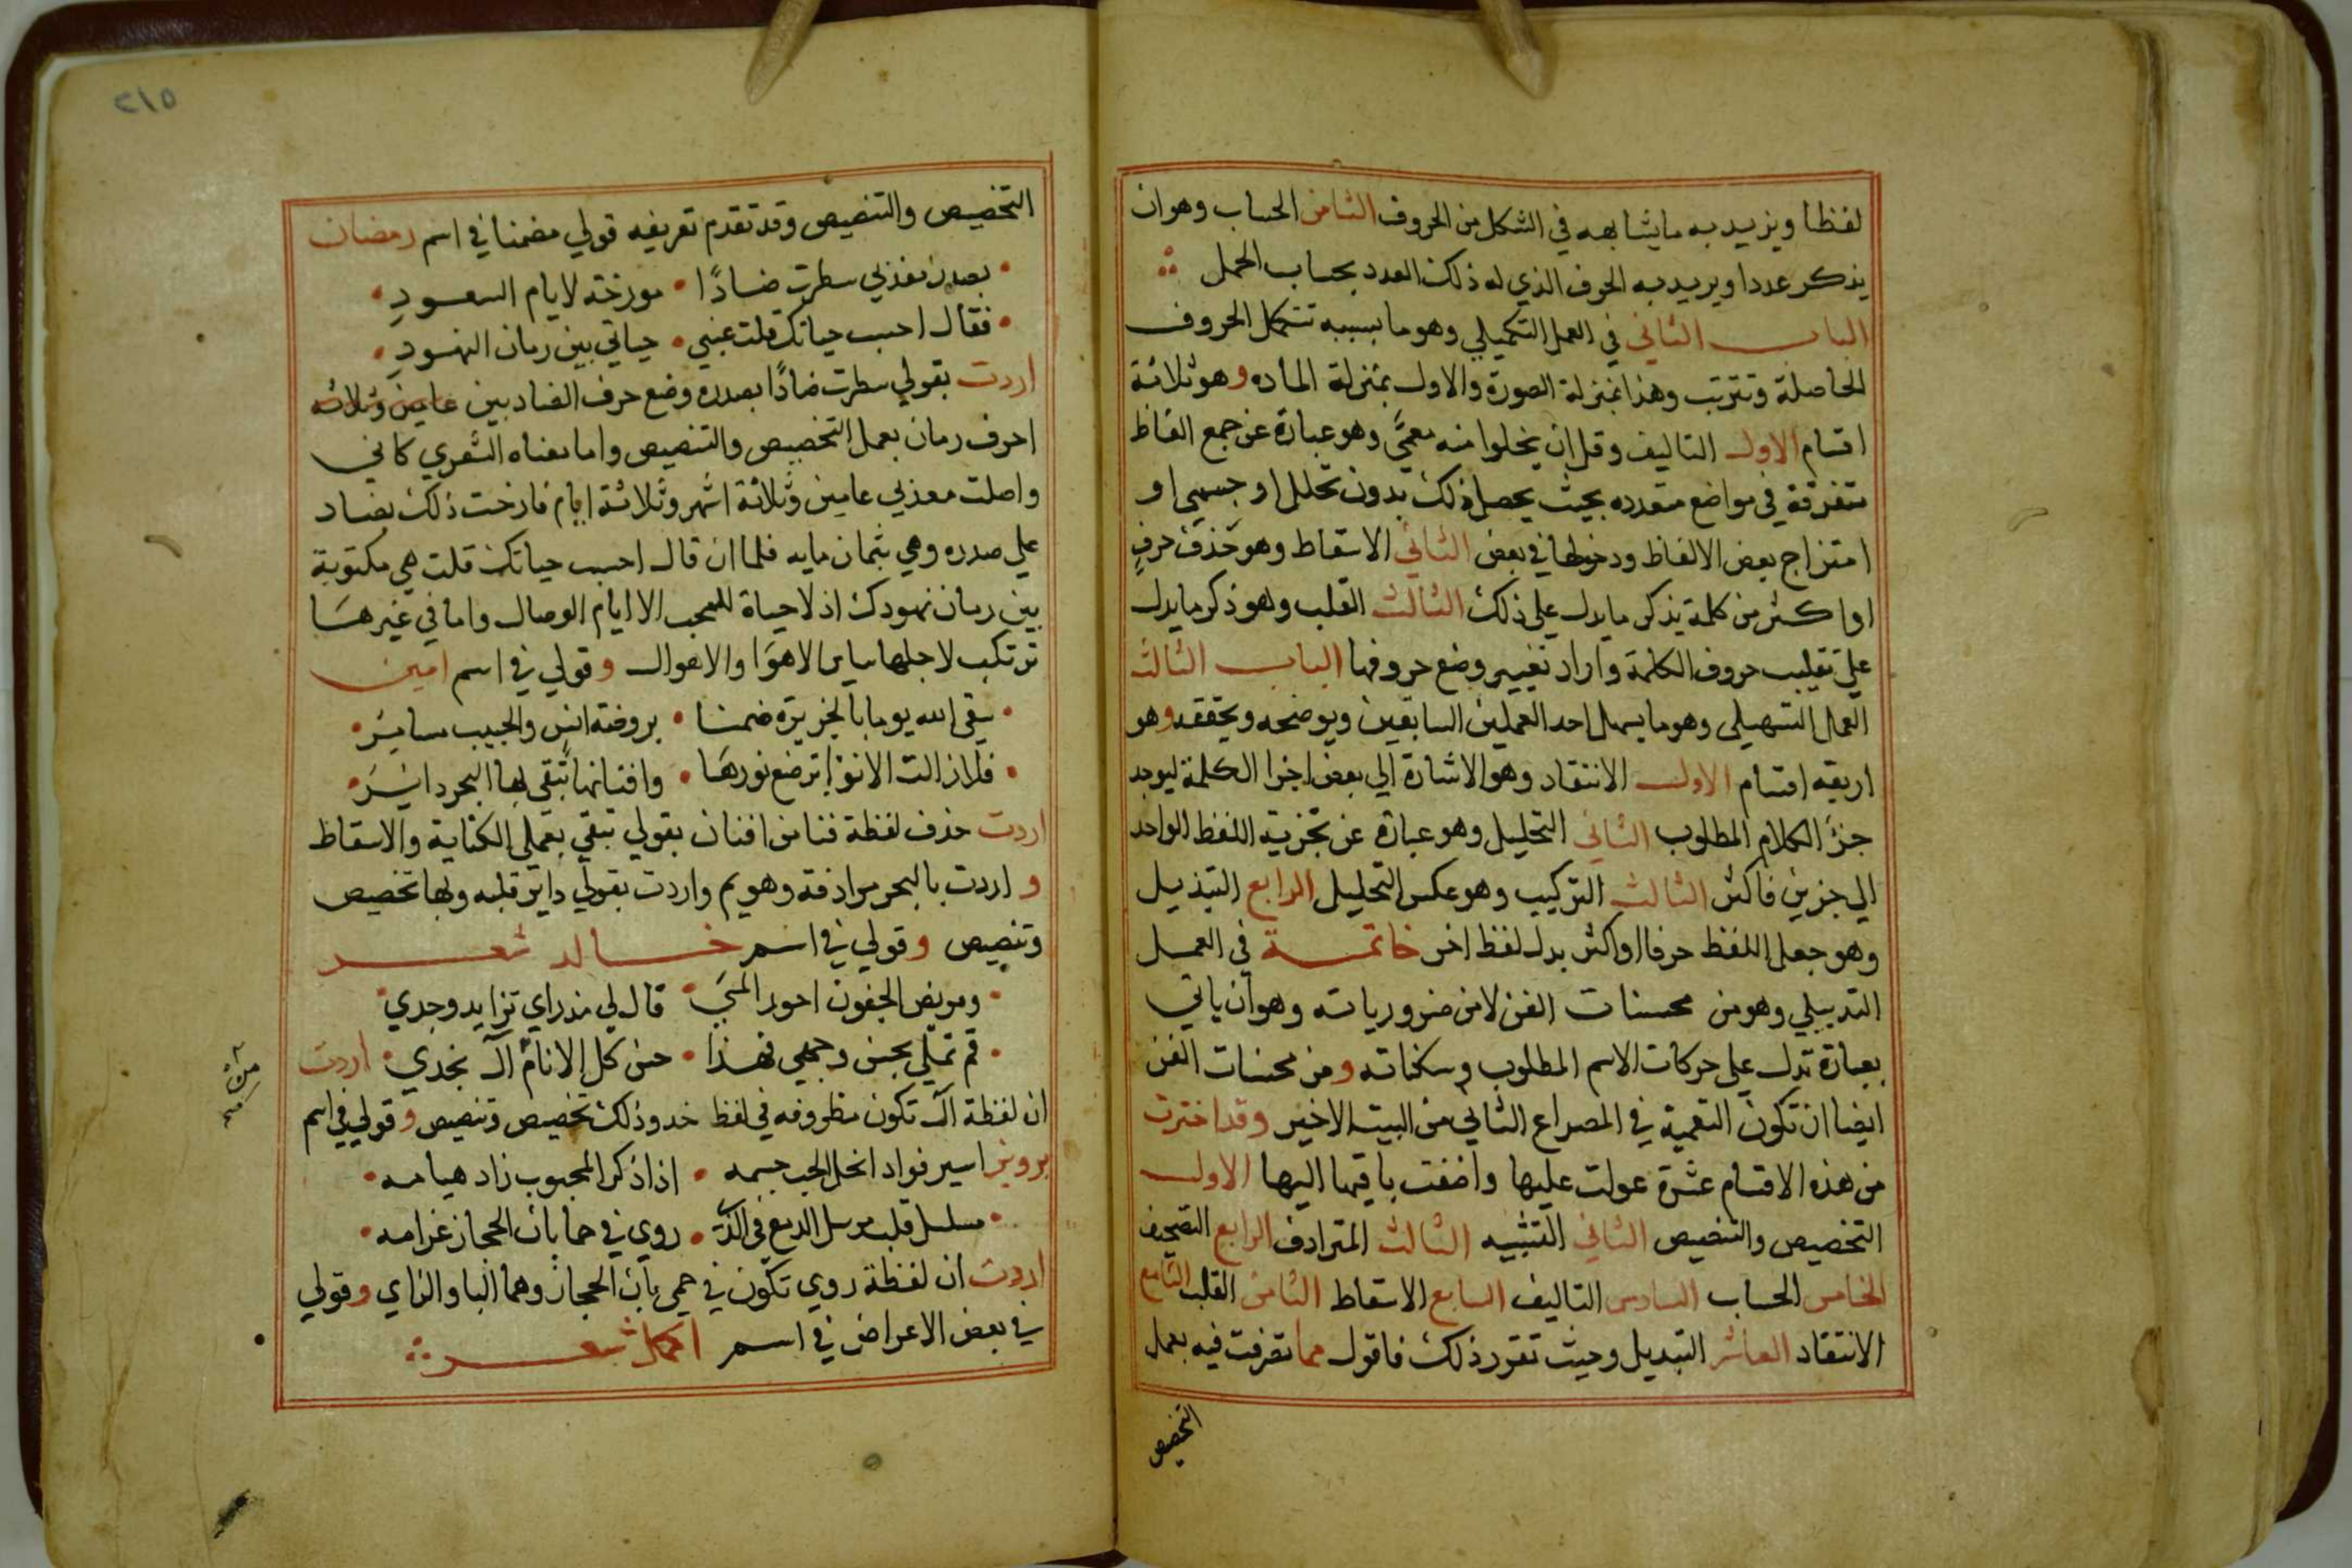 لفظا ويزيد به ما يشابهه في الشكل من الحروف الثامن الحساب وهو ان
يذكر عددا ويريد به الحرف الذي له ذلك العدد بحساب الجمل
الباب الثاني في العمل التكميلي وهو ما بسببه تتكمل الحروف
الحاصلة وتترتب وهذا بمنزلة الصورة والاول بمنزلة الماده وهو ثلاثة
اقسام الاول التاليف وقل ان يخلوا منه معمى وهو عبارة عن جمع الفاظ
متفرقة في مواضع متعدده بحيث يحصل ذلك بدون تخلل او جسمي او
امتزاج بعض الالفاظ ودخولها في بعض الثاني الاسقاط وهو حذف حرف
او اكثر من كلمة يذكر ما يدل على ذلك الثالث القلب وهو ذكر ما يدل
على تقليب حروف الكلمة واراد تغيير وضع حروفها الباب الثالث
العمل التسهيلي وهو ما يسهل احد العملين السابقين ويوضحه ويحققه وهو
اربعه اقسام الاول الانتقاد وهو الاشارة الي بعض اجزا الكلمة ليوجد
جزء الكلام المطلوب الثاني التحليل وهو عبارة عن تجزية اللفظ الواحد
الي جزين فاكثر الثالث التركيب وهو عكس التحليل الرابع التبذيل
وهو جعل اللفظ حرفا او اكثر بدل لفظ اخر خاتمة في العمل
التدبيلي وهو من محسنات الفن لا من ضرورياته وهو ان ياتي
بعبارة تدل على حركات الاسم المطلوب وسكناته ومن محسنات الفن
ايضا ان تكون التعمية في المصراع الثاني من البيت الاخير وقد اخترت
من هذه الاقسام عشرة عولت عليها واضفت باقيها اليها الاول
التخصيص والتنصيص الثاني التشبيه الثالث المترادف الرابع التصحيف
الخامس الحساب السادس التاليف السابع الاسقاط الثامن القلب التاسع
الانتقاد العاشر التبديل وحيث تقرر ذلك فاقول مما تصرفت فيه بعمل
التخصيص
٢١٥
التخصيص والتنصيص وقد تقدم تعريفه قولي مضمنا في اسم رمضان
بصدر معذبي سطرت ضادًا • مورخة لايام السعودِ
فقال احسب حياتك قلت عيني • حياتي بين رمان النهودِ
اردت بقولي سطرت ضادًا بصدره وضع حرف الضاد بين عامين وثلاثه
احرف رمان بعمل التخصيص والتنصيص واما معناه الشعري كاني
واصلت معذبي عامين وثلاثة اشهر وثلاثة ايام فارخت ذلك بضاد
علي صدره وهي بثمان مايه فلما ان قال احسب حياتك قلت هي مكتوبة
بين رمان نهودك اذ لا حياة للمحب الا ايام الوصال واما في غيرها
ترتكب لاجلها ساير الاهوا والاهوال وقولي في اسم امين
سقى الله يوما بالجزيرة ضمنا • بروضة انس والحبيب سايرُ
فلا زالت الانوا ترضع نورها • وافنانها تبقي لها البحر دايرُ
اردت حذف لفظة فنا من افنان بقولي تبقي بعملي الكناية والاسقاط
و اردت بالبحر مرادفة وهو يم واردت بقولي داير قلبه ولها تخصيص
وتنصيص وقولي في اسم خالد شعر
ومريض الجفون احور المي • قال لي مذ راي تزايد وجدي
قم تملي بحسن وجهي فهذا • حسن كل الانام آل بخدي اردت
ان لفظة آل تكون مظروفه في لفظ خد وذلك تخصيص وتنصيص وقولي في اسم
برويز اسير فواد انحل الحب جسمه • اذا ذكر المحبوب زاد هيامه
مسلسل قلب مرسل الدمع في الذي • روي في حما بان الحجاز غرامه
اردت ان لفظة روي تكون في حمي بان الحجاز وهما البا والزاي وقولي
في بعض الاعراض في اسم اكمال شعر